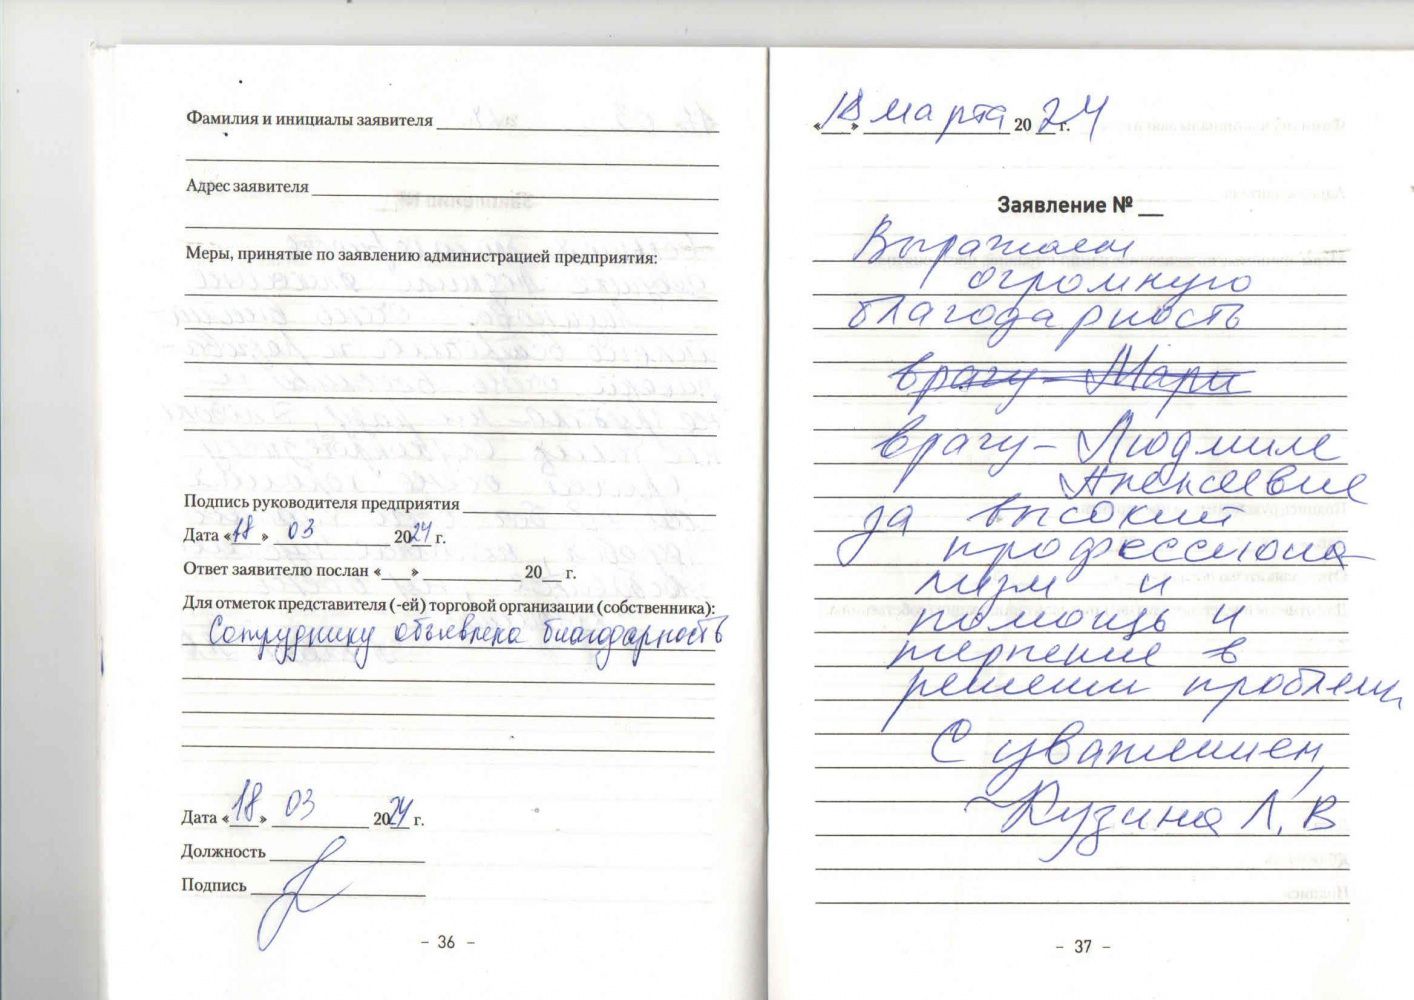 Фамилия и инициалы заявителя
Адрес заявителя
Меры, принятые по заявлению администрацией предприятия:
Подпись руководителя предприятия
Дата «18» 03 2024 г.
Ответ заявителю послан «___» ____________ 20__ г.
Для отметок представителя (-ей) торговой организации (собственника):
Сотруднику объявлена благодарность
Дата «18» 03 2024 г.
Должность
Подпись
- 36 -
«18» марта 2024 г.
Заявление № __
Выражаем
огромную
благодарность
врачу - Мари
врачу - Людмиле
Алексеевне
за высокий
профессиона-
лизм и
помощь и
терпение в
решении проблем
С уважением,
Кузина Л. В
- 37 -